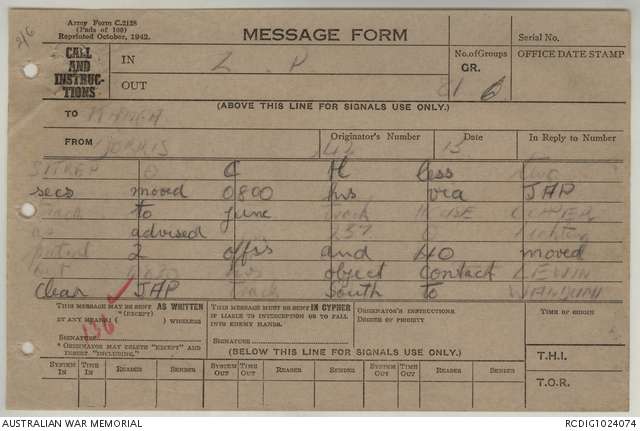 216
Army Form C.2128
(Pads of 100)
Reprinted October, 1942.
MESSAGE FORM
Serial No.
CALL AND INSTRUCTIONS
IN
Z P
No. of Groups
GR.
OFFICE DATE STAMP
OUT
81 6
(ABOVE THIS LINE FOR SIGNALS USE ONLY.)
TO
FROM
Originator's Number
Date
In Reply to Number
NORRIS
SITREP O C H less two
secs moved 0800 hrs via JAP
track to junc track HOUSE COPPER
as advised 237 O
patrol 2 offrs and 40 moved
out hrs object contact LEWIN
clear JAP track south to WANDUMI
THIS MESSAGE MAY BE SENT AS WRITTEN
(EXCEPT)
BY ANY MEANS ( ) WIRELESS
136
SIGNATURE
* ORIGINATOR MAY DELETE "EXCEPT" AND INSERT "INCLUDING."
THIS MESSAGE MUST BE SENT IN CYPHER
IF LIABLE TO INTERCEPTION OR TO FALL INTO ENEMY HANDS.
SIGNATURE
ORIGINATOR'S INSTRUCTIONS.
DEGREE OF PRIORITY
TIME OF ORIGIN
(BELOW THIS LINE FOR SIGNALS USE ONLY.)
T.H.I.
SYSTEM IN TIME IN READER SENDER SYSTEM OUT TIME OUT READER SENDER SYSTEM OUT TIME OUT READER SENDER
T.O.R.
AUSTRALIAN WAR MEMORIAL
RCDIG1024074